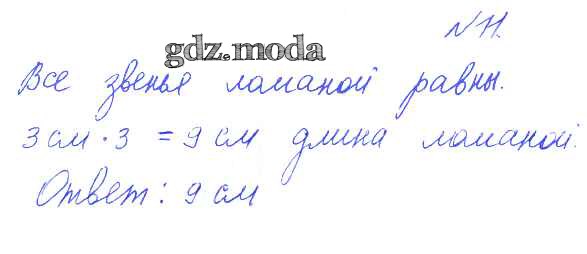 № 11.
gdz.moda
Все звенья ломаной равны.
3 см · 3 = 9 см длина ломаной.
Ответ: 9 см